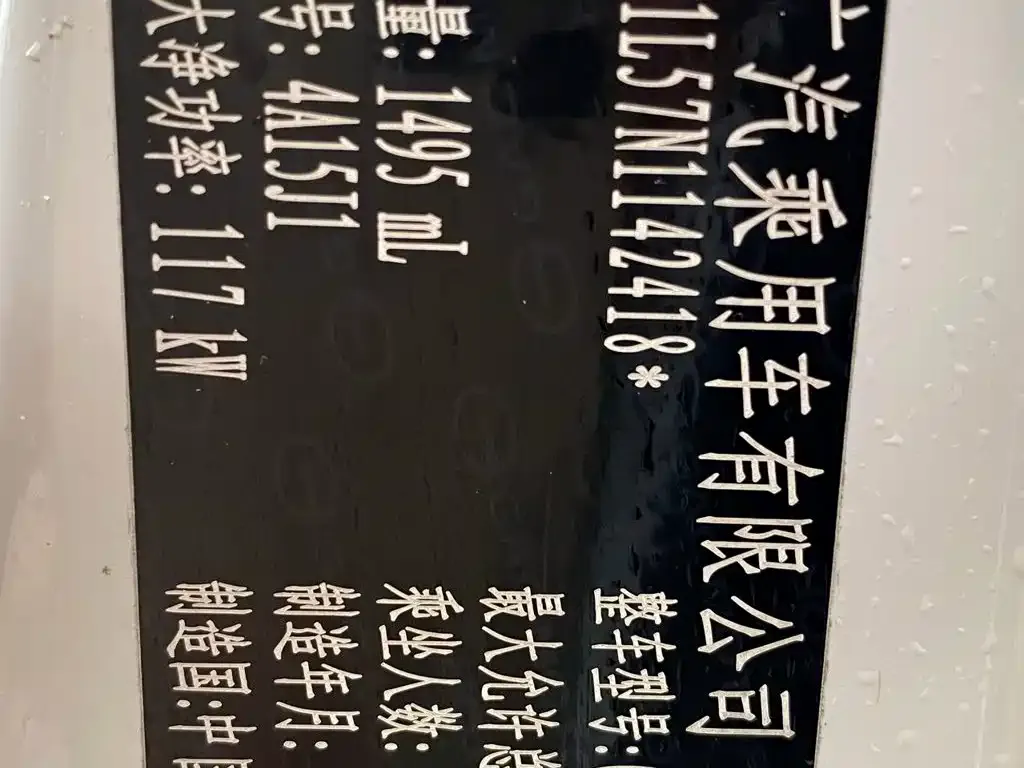 汽乘用车有限公司
1L57N1142418* 整车型号:
最大允许总
量: 1495 mL 乘坐人数:
号: 4A15J1 制造年月:
大净功率: 117 kW 制造国:中